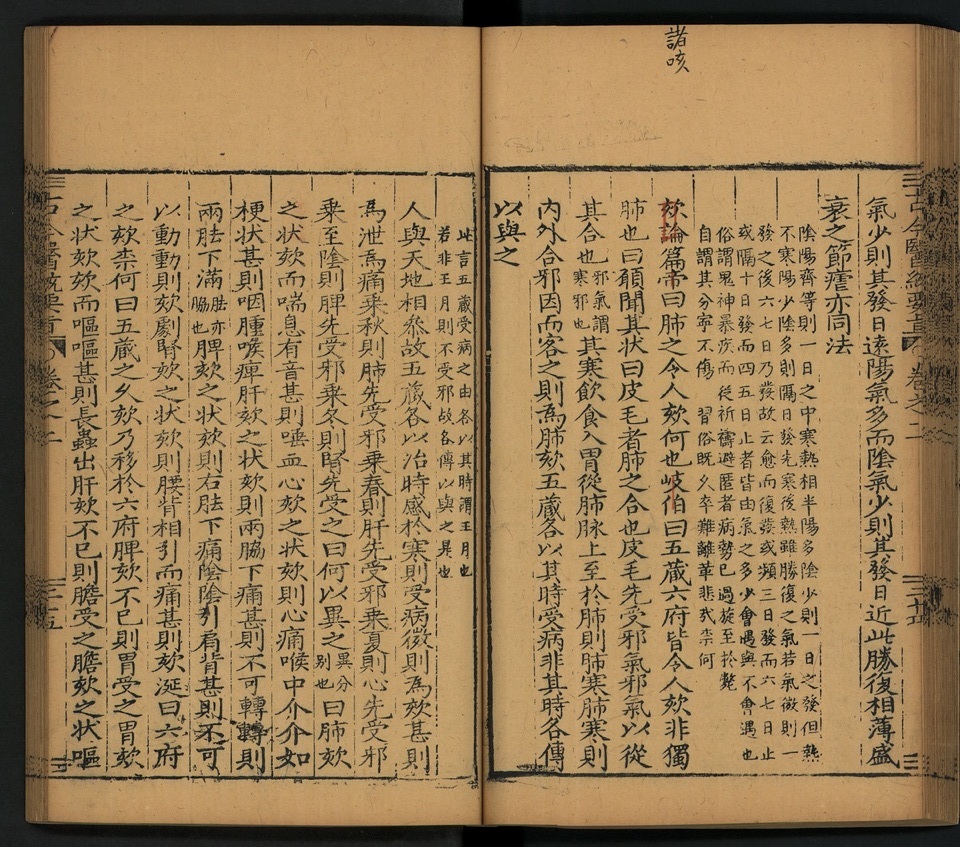 諸咳
氣少則其發日逺陽氣多而陰氣少則其發日近此勝復相薄盛
衰之節瘧亦同法
陰陽齊等則一日之中寒熱相半陽多陰少則一日之發但熱
不寒陽少陰多則隔日發先寒後熱雖勝復之氣若氣微則一
發之後六七日乃發故云愈而復發或頻三日發而六七日止
或隔十日發而四五日止者皆由氣之多少會遇與不會遇也
俗謂鬼神暴疾而從祈禱避匿者病勢已過旋至於斃
自謂其分寧不傷 習俗既久卒難離革悲㢤柰何
欬論篇帝曰肺之令人欬何也岐伯曰五藏六府皆令人欬非獨
肺也曰願聞其狀曰皮毛者肺之合也皮毛先受邪氣邪氣以從
其合也邪氣謂寒邪也其寒飲食入胃從肺脉上至於肺則肺寒肺寒則
内外合邪因而客之則爲肺欬五藏各以其時受病非其時各傳
以與之
此言五藏受病之由各以其時謂王月也
若非王月則不受邪故各傳以與之是也
人與天地相參故五藏各以治時感於寒則受病微則爲欬甚則
爲泄爲痛乗秋則肺先受邪乗春則肝先受邪乗夏則心先受邪
乗至陰則脾先受邪乗冬則腎先受之曰何以異之異分别也曰肺欬
之状欬而喘息有音甚則唾血心欬之状欬則心痛喉中介介如
梗状甚則咽腫喉痺肝欬之状欬則兩脇下痛甚則不可轉轉則
兩胠下滿胠亦脇也脾欬之状欬則右胠下痛陰陰引肩背甚則不可
以動動則欬劇腎欬之状欬則腰背相引而痛甚則欬涎曰六府
之欬柰何曰五藏之久欬乃移於六府脾欬不已則胃受之胃欬
之状欬欬而嘔嘔甚則長蟲出肝欬不已則膽受之膽欬之状嘔
卷之二
三十五